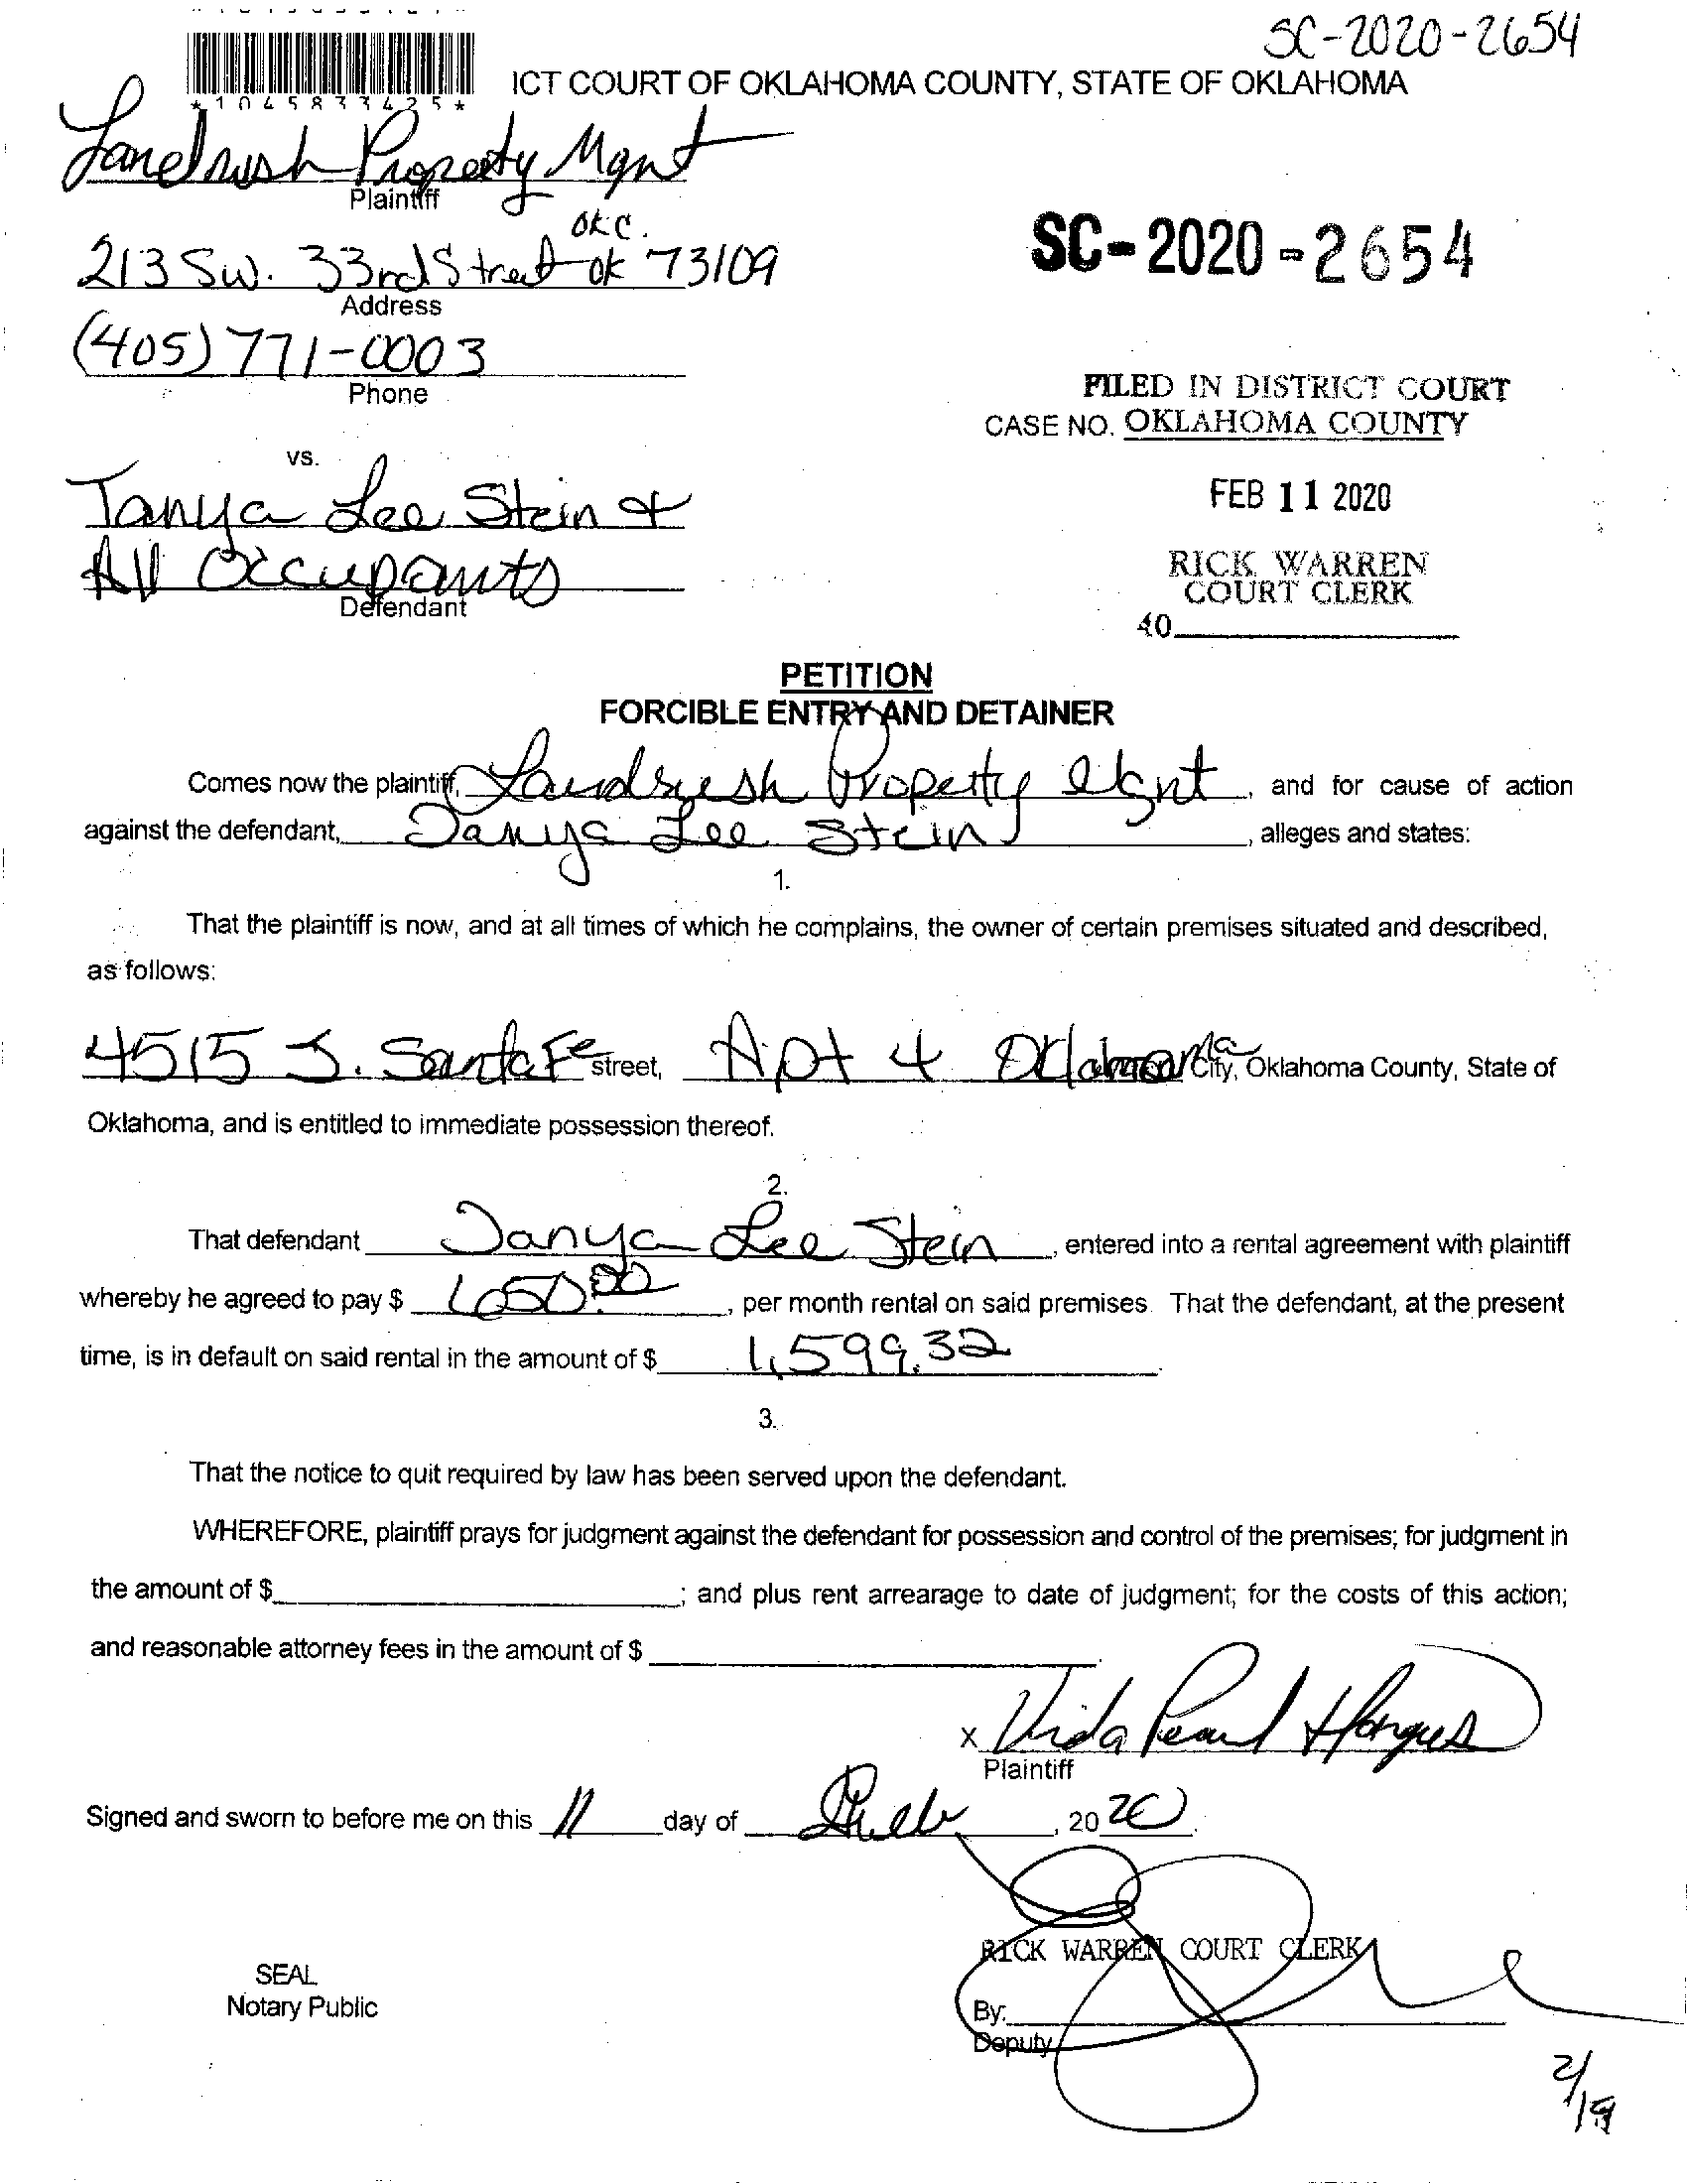 SC-2020-2654
ICT COURT OF OKLAHOMA COUNTY, STATE OF OKLAHOMA
*1045833425*
Landrush Property Mgnt
Plaintiff
OKC.
213 SW. 33rd Street OK 73109
Address
SC-2020-2654
(405) 771-0003
Phone
FILED IN DISTRICT COURT
CASE NO. OKLAHOMA COUNTY
vs.
Tanya Lee Stein &
FEB 11 2020
All Occupants
Defendant
RICK WARREN
COURT CLERK
40
PETITION
FORCIBLE ENTRY AND DETAINER
Comes now the plaintiff, Landrush Property Mgnt, and for cause of action
against the defendant, Tanya Lee Stein, alleges and states:
1.
That the plaintiff is now, and at all times of which he complains, the owner of certain premises situated and described,
as follows:
4515 S. Santa Fe street, Apt 4 Oklahoma City, Oklahoma County, State of
Oklahoma, and is entitled to immediate possession thereof.
2.
That defendant Tanya Lee Stein, entered into a rental agreement with plaintiff
whereby he agreed to pay $ 650.00, per month rental on said premises. That the defendant, at the present
time, is in default on said rental in the amount of $ 1,599.32.
3.
That the notice to quit required by law has been served upon the defendant.
WHEREFORE, plaintiff prays for judgment against the defendant for possession and control of the premises; for judgment in
the amount of $ ; and plus rent arrearage to date of judgment; for the costs of this action;
and reasonable attorney fees in the amount of $ .
x Vida Pearl Hargues
Plaintiff
Signed and sworn to before me on this 11 day of , 2020.
RICK WARREN COURT CLERK
SEAL
Notary Public
By:
Deputy
2/19